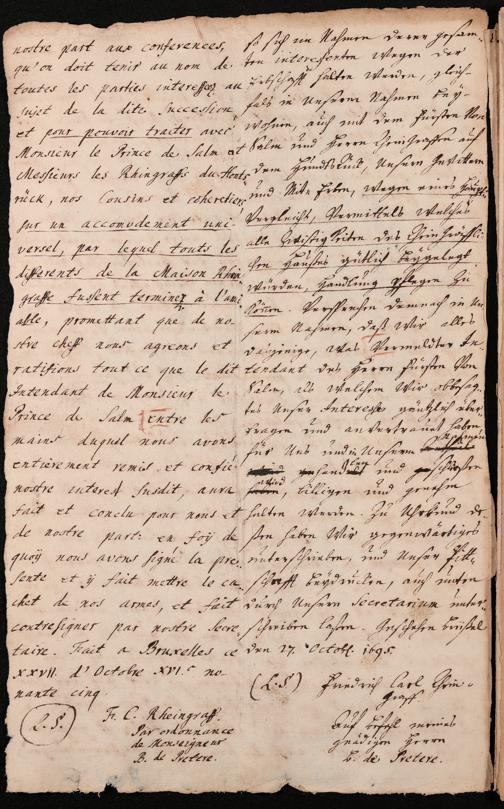 nostre part aux conferences,
qu'on doit tenir au nom de
toutes les parties interessez au
sujet de la dite succession
et pour pouvoir traiter avec
Monsieur le Prince de Salm et
Messieurs les Rhingraffs du Honts
rück, nos Cousins et coheretiers
sur un accomodement uni
versel, par lequel touts les
differents de la Maison Rhin
graffe fussent terminez à l'ami
able, promettant que de no-
stre chef nous agreons et
ratifions tout ce que le dit
Intendant de Monsieur le
Prince de Salm entre les
mains duquel nous avons
entièrement remis et confié
nostre interest susdit, aura
fait et conclu pour nous et
de nostre part: en foÿ de
quoÿ nous avons signé la pre
sente et y fait mettre le ca
chet de nos armes, et fait
contresigner par nostre Secre
taire. Fait a Bruxelles ce
XXVII d'Octobre XVI.c no-
nante cinq
(L.S.) Fr. C. Rheingraff.
Par ordonnance
de Monseigneur
B. de Pretere.
so sich im Nahmen derer gesam-
ten interessenten wegen der
Erbschafft halten werden, gleich-
fals in Unserm Nahmen beÿ-
wohnen, auch mit dem Fürsten von
Salm und Herrn Rheingraffen auf
dem Hundsrück, Unsern Gevettern
und Mit Erben, wegen eines haupt-
Vergleichs, Vermittels welches
alle Zwistigkeiten des Rheingräffli-
chen Hauses gütlich beygelegt
würden, Handlung pflegen zu
können. Versprechen demnach in Un-
serm Nahmen, daß Wir alles
dasjenige, was Vermeldter In-
tendant des Herrn Fürsten Von
Salm, als welchem Wir obbesag-
tes Unser Interesse gäntzlich über-
tragen und anvertrauet haben,
für Uns und in Unserm
und geschlossen
billigen und genehm
halten werden. Zu Uhrkund de
ßen haben Wir gegenwärtiges
unterschrieben, und Unser Pitt-
schafft beydrucken, auch
durch Unsern Secretarium unter-
schreiben laßen. Geschehen Brüssel
den 27. Octobr. 1695.
(L.S) Friedrich Carl Rhein-
Graff
Auf befehl meines
gnädigen Herrn
B. de Pretere.